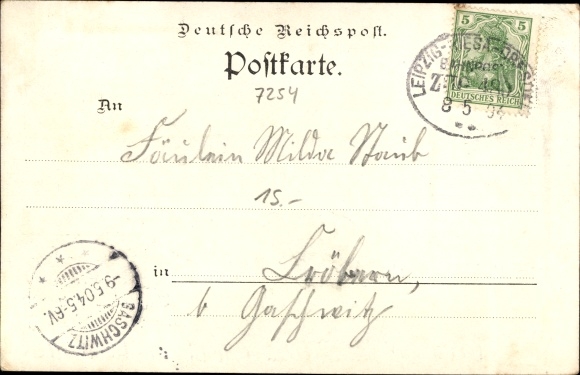 Deutsche Reichspost.
Postkarte.
7254
An
Fräulein Milda Staub
15.-
in Cröbern,
b Gaschwitz
5 5
DEUTSCHES REICH
LEIPZIG-RIESA-DRESDEN
BAHNPOST
ZUG
8 5 04
GASCHWITZ
-9.5.04.5-6V.